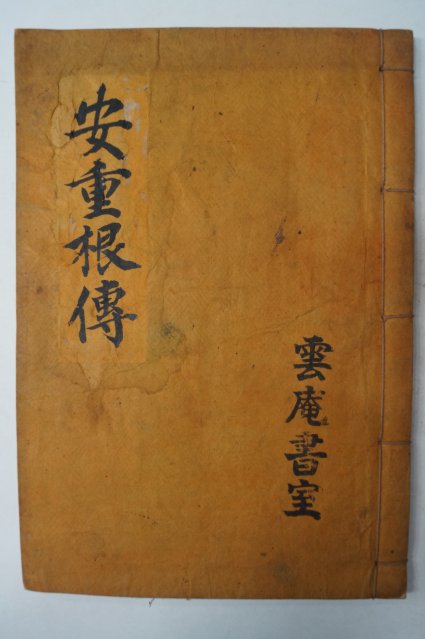 安重根傳
雲庵書室